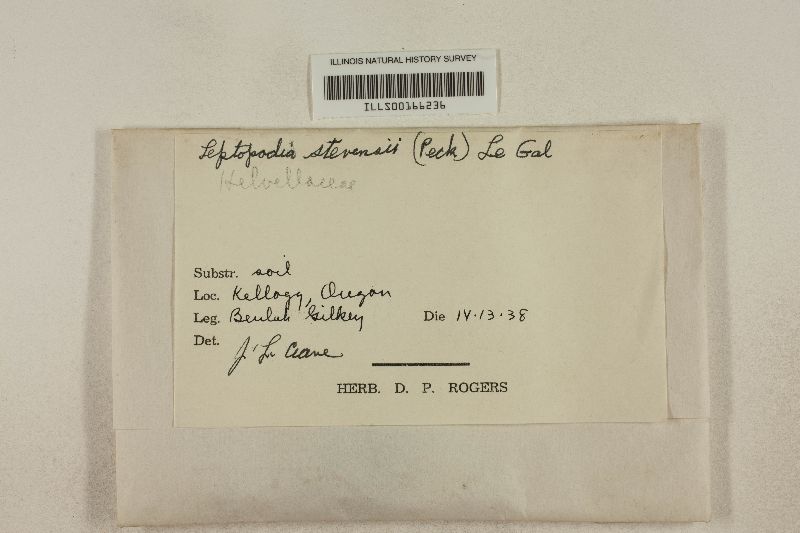 ILLINOIS NATURAL HISTORY SURVEY
ILLS00166236
Leptopodia stevensii (Peck) Le Gal
Helvellaceae
Substr. soil
Loc. Kellogg, Oregon
Leg. Beulah Gilkey Die IV.13.38
Det. J. L. Crane
HERB. D. P. ROGERS